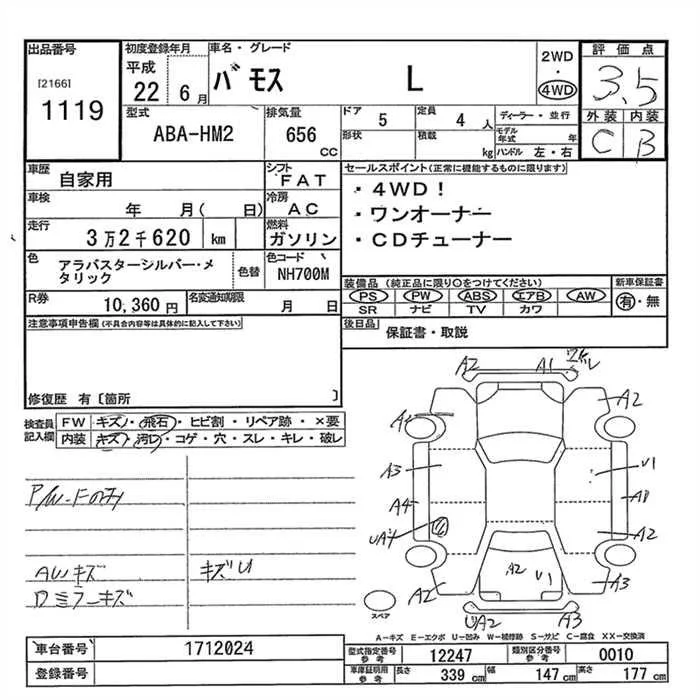 出品番号
[2166]
1119
初度登録年月
平成
22 6月
車名・グレード
バモス L
2WD
・
4WD
評価点
3.5
外装 内装
C B
型式
ABA-HM2
排気量
656
CC
ドア
5
定員
4 人
形状
積載
kg
ディーラー・並行
モデル年式 年
ハンドル 左・右
車歴
自家用
シフト
FAT
車検
年 月( 日)
冷房
AC
走行
3万2千620 km
燃料
ガソリン
色
アラバスターシルバー・メタリック
色替
色コード
NH700M
R券
10,360 円
名変通知期限
月 日
セールスポイント(正常に機能するものに限ります)
・4WD!
・ワンオーナー
・CDチューナー
装備品(純正品に限り○をつけてください)
PS PW ABS エアB AW
SR ナビ TV カワ
新車保証書
有・無
後日品
保証書・取説
注意事項申告欄(不具合内容等は具体的に記入して下さい)
修復歴 有〔箇所 〕
検査員記入欄
FW キズ・飛石・ヒビ割・リペア跡・×要
内装 キズ・汚レ・コゲ・穴・スレ・キレ・破レ
AWキズ
キズU
ドミラーキズ
A2
A1
A2
A3
U1
A4
A2
A2
U1
A2
A3
UA2
A3
スペア
A－キズ E－エクボ U－凹み W－補修跡 S－サビ C－腐食 XX－交換済
車台番号
1712024
登録番号
型式指定番号
参考
12247
類別区分番号
参考
0010
車庫証明用
参考
長さ
339 cm
幅
147 cm
高さ
177 cm